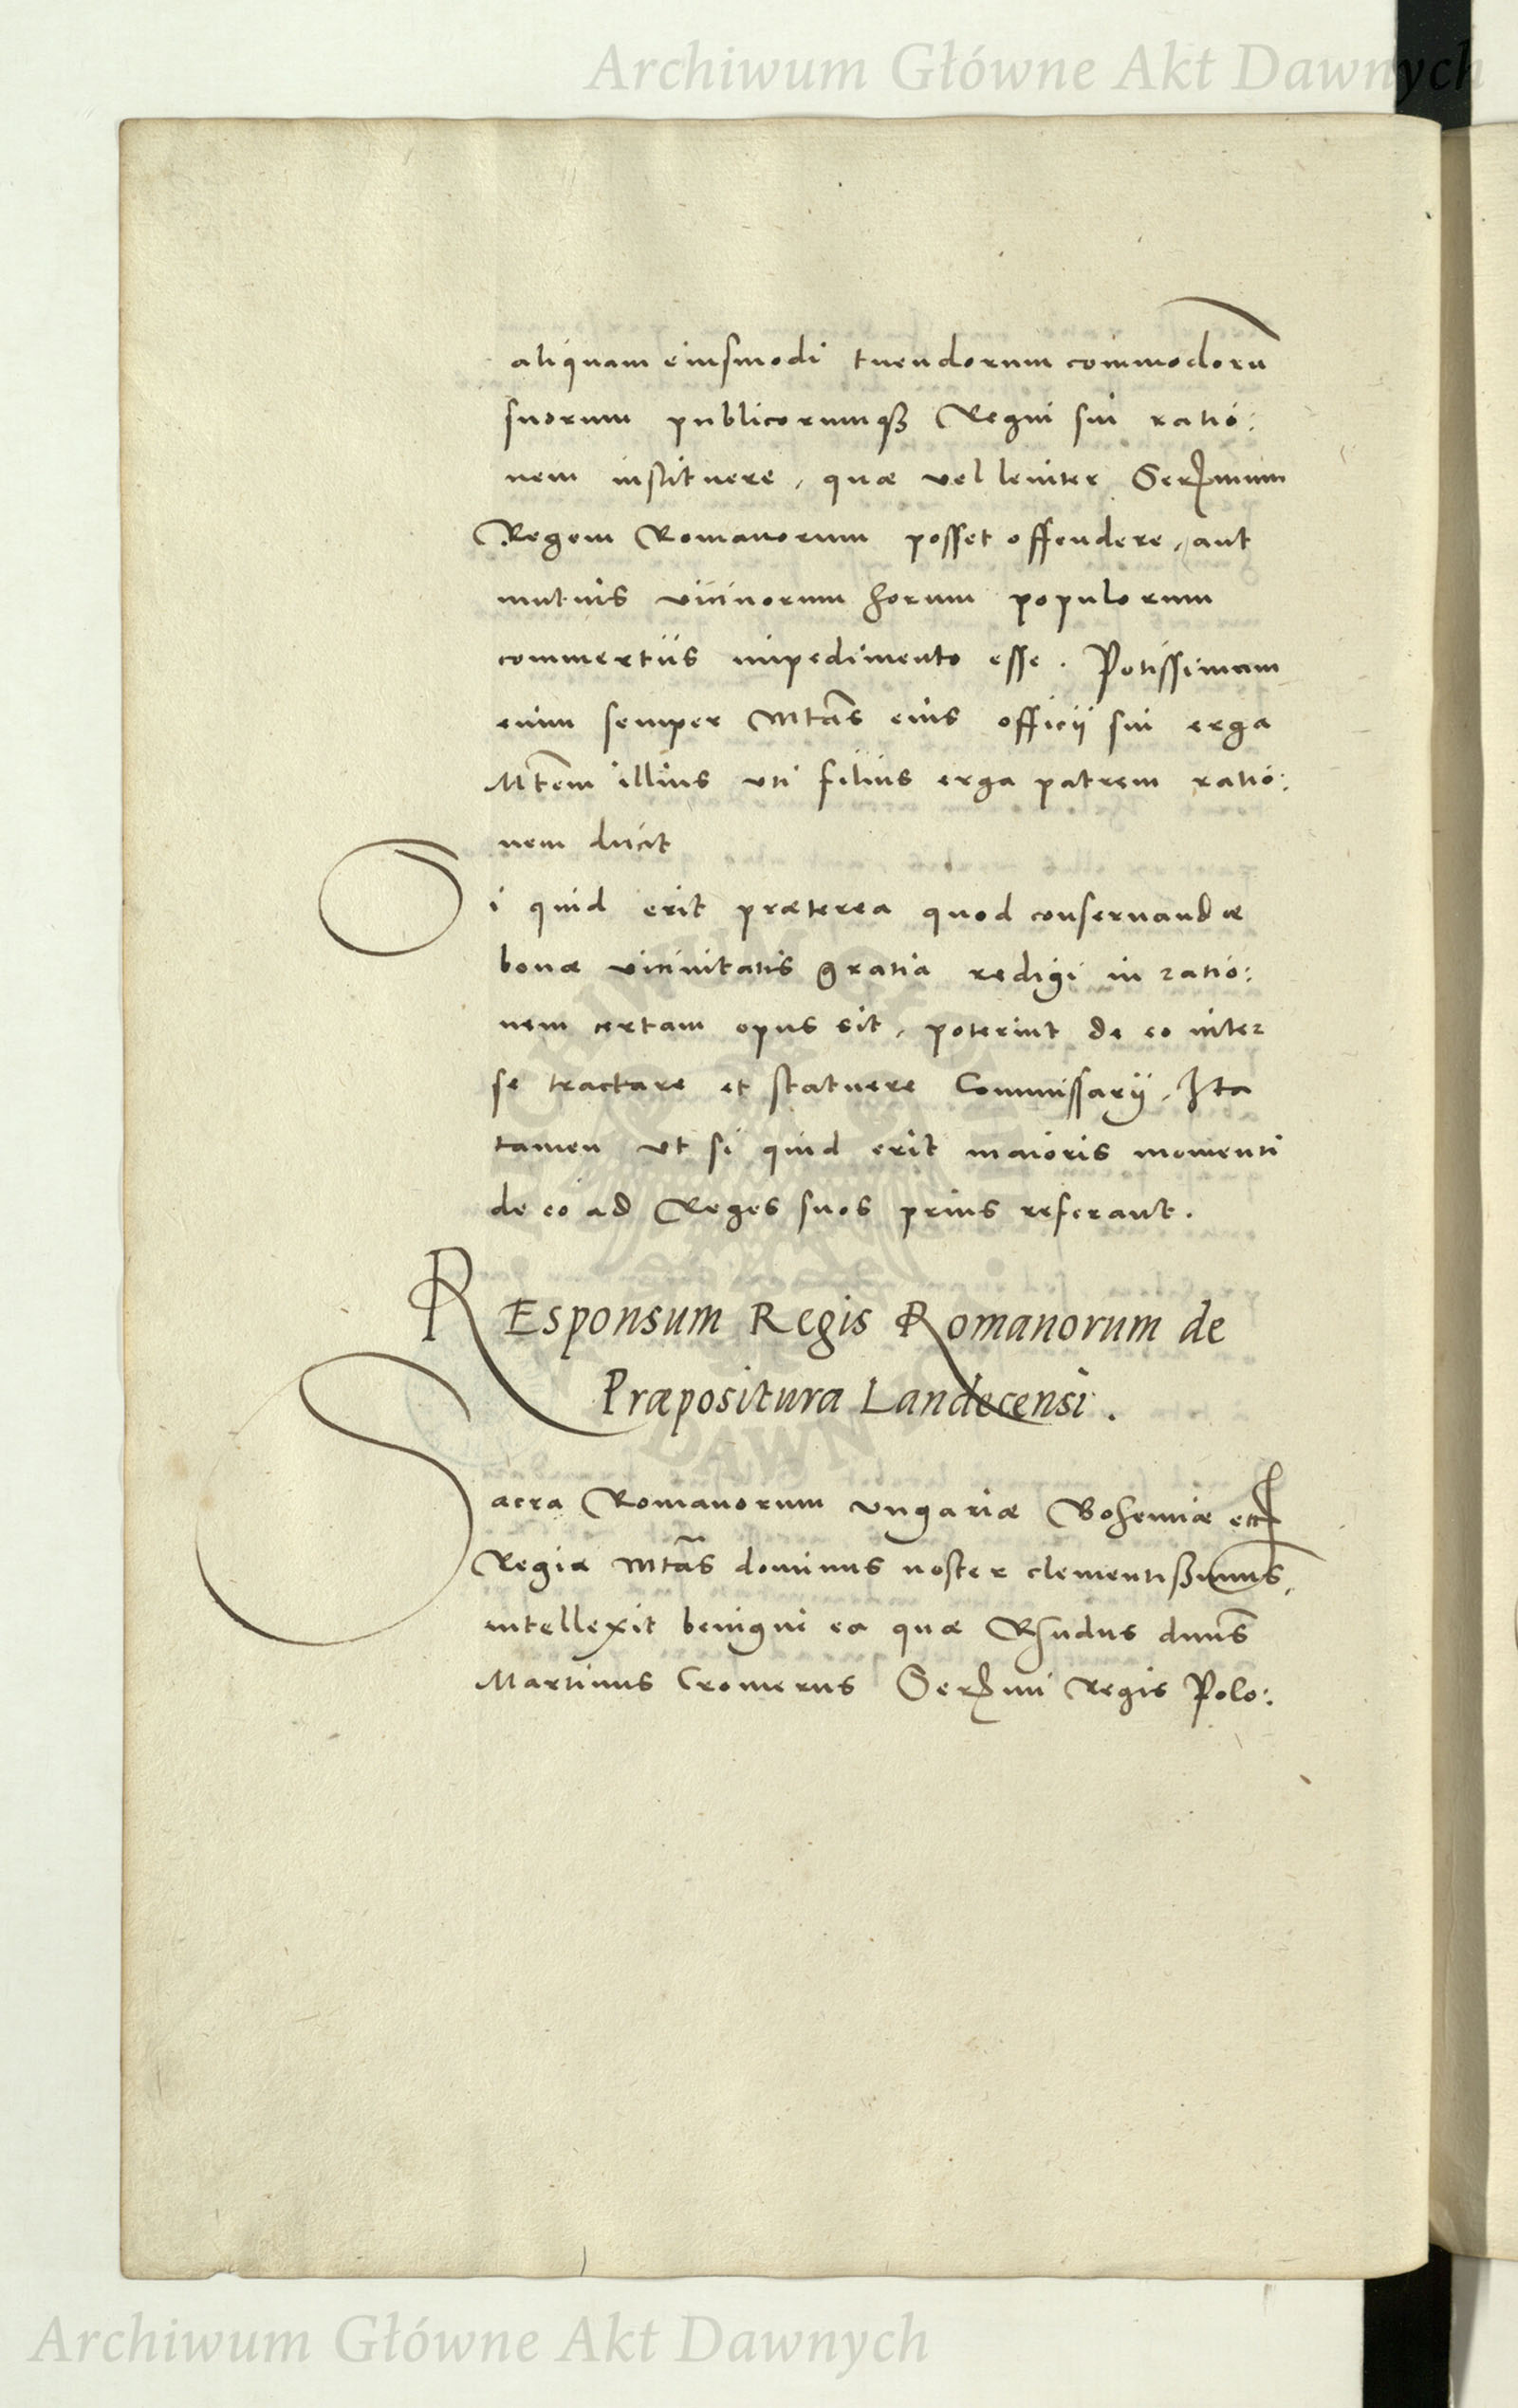 Archiwum Główne Akt Dawnych
aliquam eiusmodi tuendorum commodorū
suorum publicorumqꝫ Regni sui ratio:
nem instituere, quæ vel leviter Serꝫmum
Regem Romanorum posset offendere, aut
mutuis vicinorum horum populorum
commertiis impedimento esse. Potissimam
enim semper Mtās eius officij sui erga
Mtēm illius uti filius erga patrem ratio:
nem ducit
Si quid erit præterea quod conservandæ
bonæ vicinitatis gratia redigi in ratio:
nem certam opus sit, poterint de eo inter
se tractare et statuere Commissarij, Ita
tamen ut si quid erit maioris momenti
de eo ad Reges suos prius referant.
REsponsum Regis Romanorum de
Præpositura Landecensi.
Sacra Romanorum Ungariæ Bohemiæ etc
Regia Mtās dominus noster clementißimus,
intellexit benigne ea quæ Rhudus dnūs
Martinus Cromerus Serꝫmi Regis Polo:
Archiwum Główne Akt Dawnych